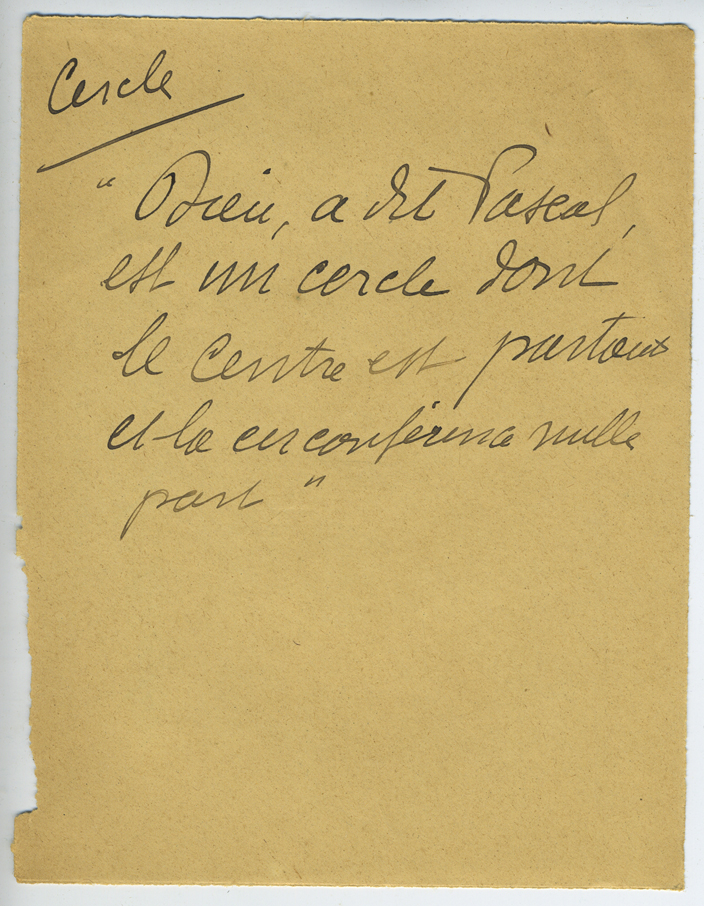 Cercle
" Dieu, a dit Pascal,
est un cercle dont
le centre est partout
et la circonférence nulle
part "